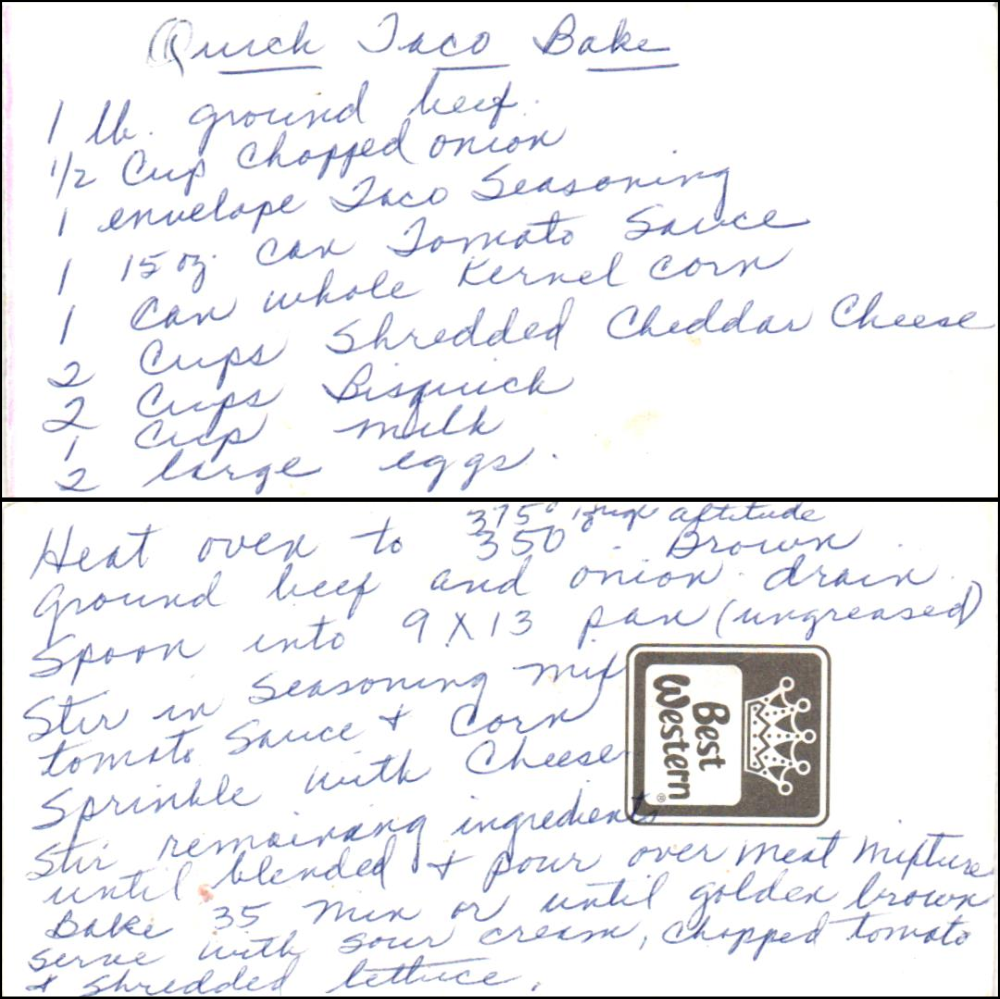 Quick Taco Bake
1 lb. ground beef.
1/2 Cup Chopped onion
1 envelope Taco Seasoning
1 15 oz. can Tomato Sauce
1 can whole Kernel corn
2 Cups Shredded Cheddar Cheese
2 Cups Bisquick
1 Cup milk
2 large eggs.
375° high altitude
Heat oven to 350°. Brown
ground beef and onion. drain.
Spoon into 9 X 13 pan (ungreased)
Stir in seasoning mix
tomato Sauce + Corn
Sprinkle with Cheese
Stir remaining ingredients
until blended + pour over meat mixture
Bake 35 min or until golden brown
serve with sour cream, chopped tomato
+ shredded lettuce.
Best
Western®